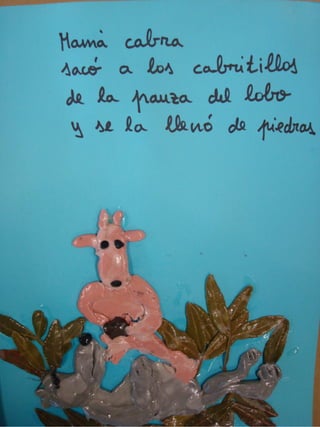 Mamá cabra
sacó a los cabritillos
de la panza del lobo
y se la llenó de piedras